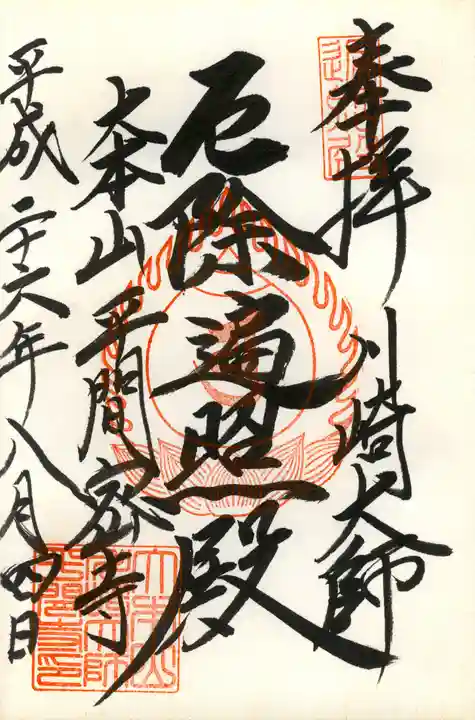 奉拝
川崎大師
厄除遍照殿
大本山平間密寺
平成二十六年八月四日